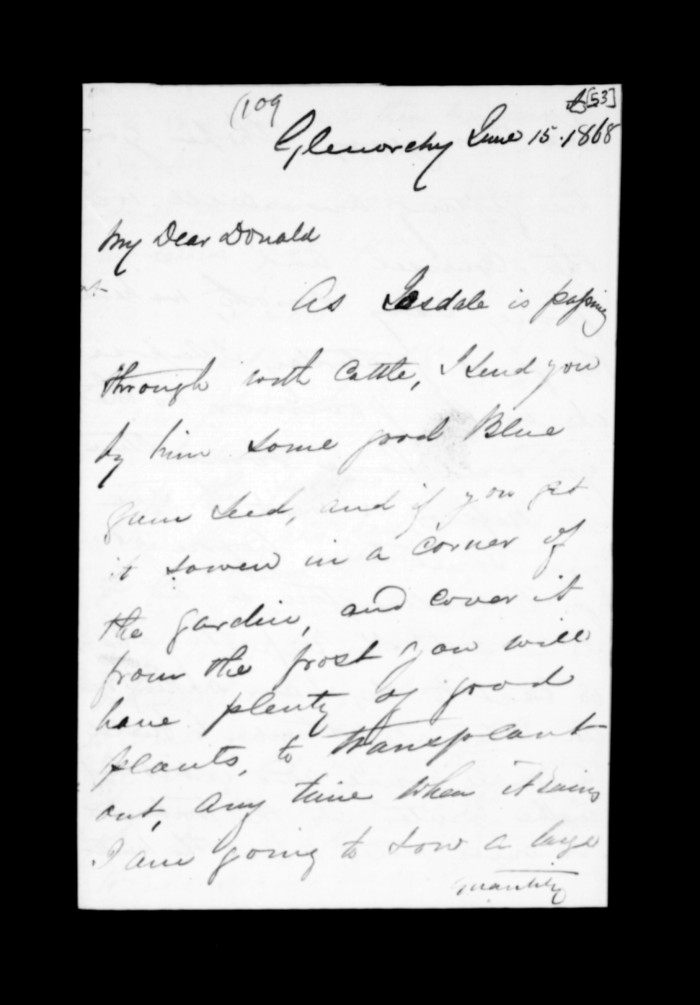 (109
[53]
Glenorchy June 15. 1868
My Dear Donald
As is passing
through with Cattle, I send you
by him some good Blue
gum seed, and if you get
it sowen in a corner of
the garden, and cover it
from the frost you will
have plenty of good
plants, to transplant
out, any time when it rains
I am going to sow a large
quantity